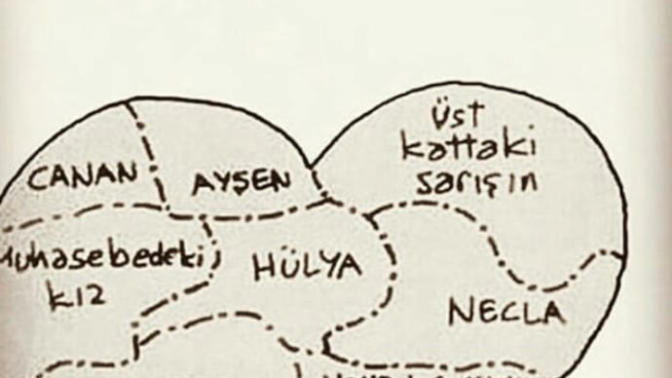 CANAN
AYŞEN
Üst
kattaki
sarışın
Muhasebedeki
kız
HÜLYA
NECLA